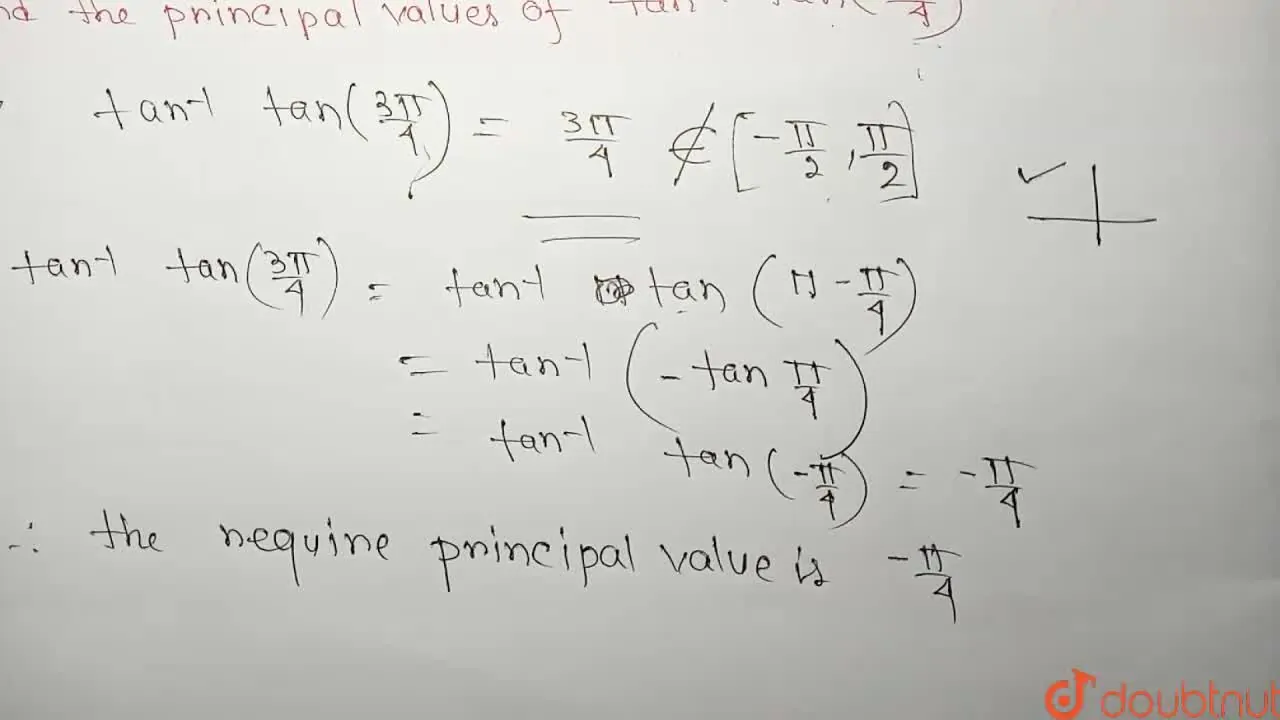 the principal values of tan
tan-1 tan(3π/4) = 3π/4 ∉ [-π/2, π/2]
tan-1 tan(3π/4) = tan-1 tan (π - π/4)
= tan-1 (- tan π/4)
= tan-1 tan (-π/4) = -π/4
∴ the require principal value is -π/4
doubtnut